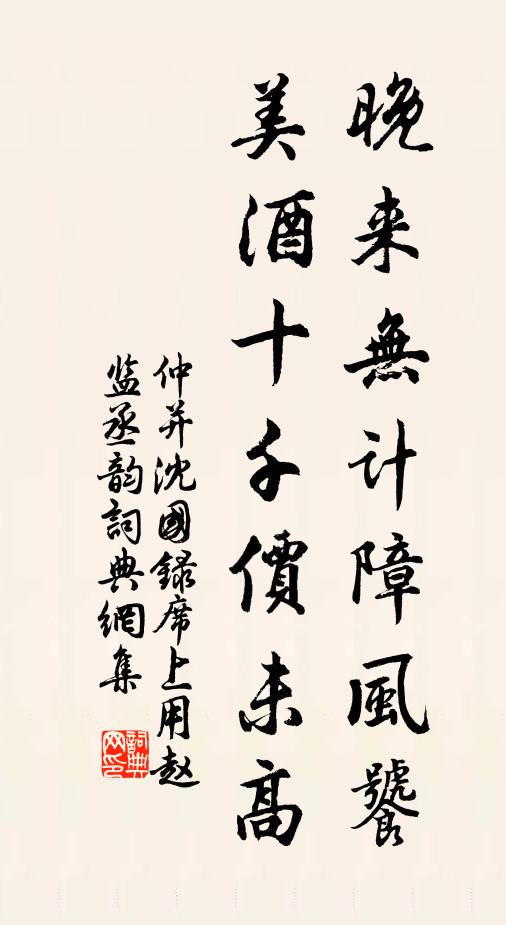 晚来無计障風饕
美酒十千價未高
仲并沈國録席上用赵
监丞韵詞典網集
詞典网印